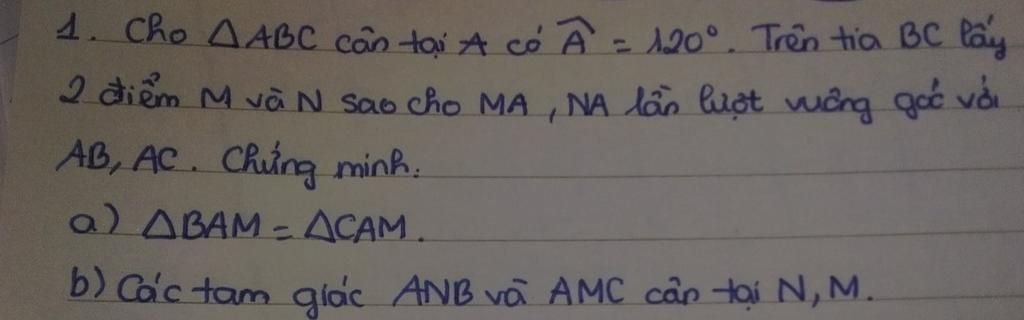 1. Cho ΔABC cân tại A có Â = 120°. Trên tia BC lấy
2 điểm M và N sao cho MA, NA lần lượt vuông góc với
AB, AC. Chứng minh:
a) ΔBAM = ΔCAM.
b) Các tam giác ANB và AMC cân tại N, M.